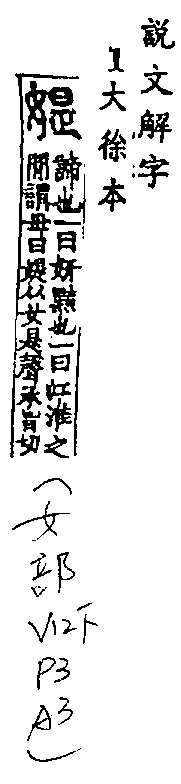 説文解字
1大徐本
媞
諦也一曰妍黠也一曰江淮之
閒謂母曰媞从女是聲承旨切
(女部
V12下
P3
A3)